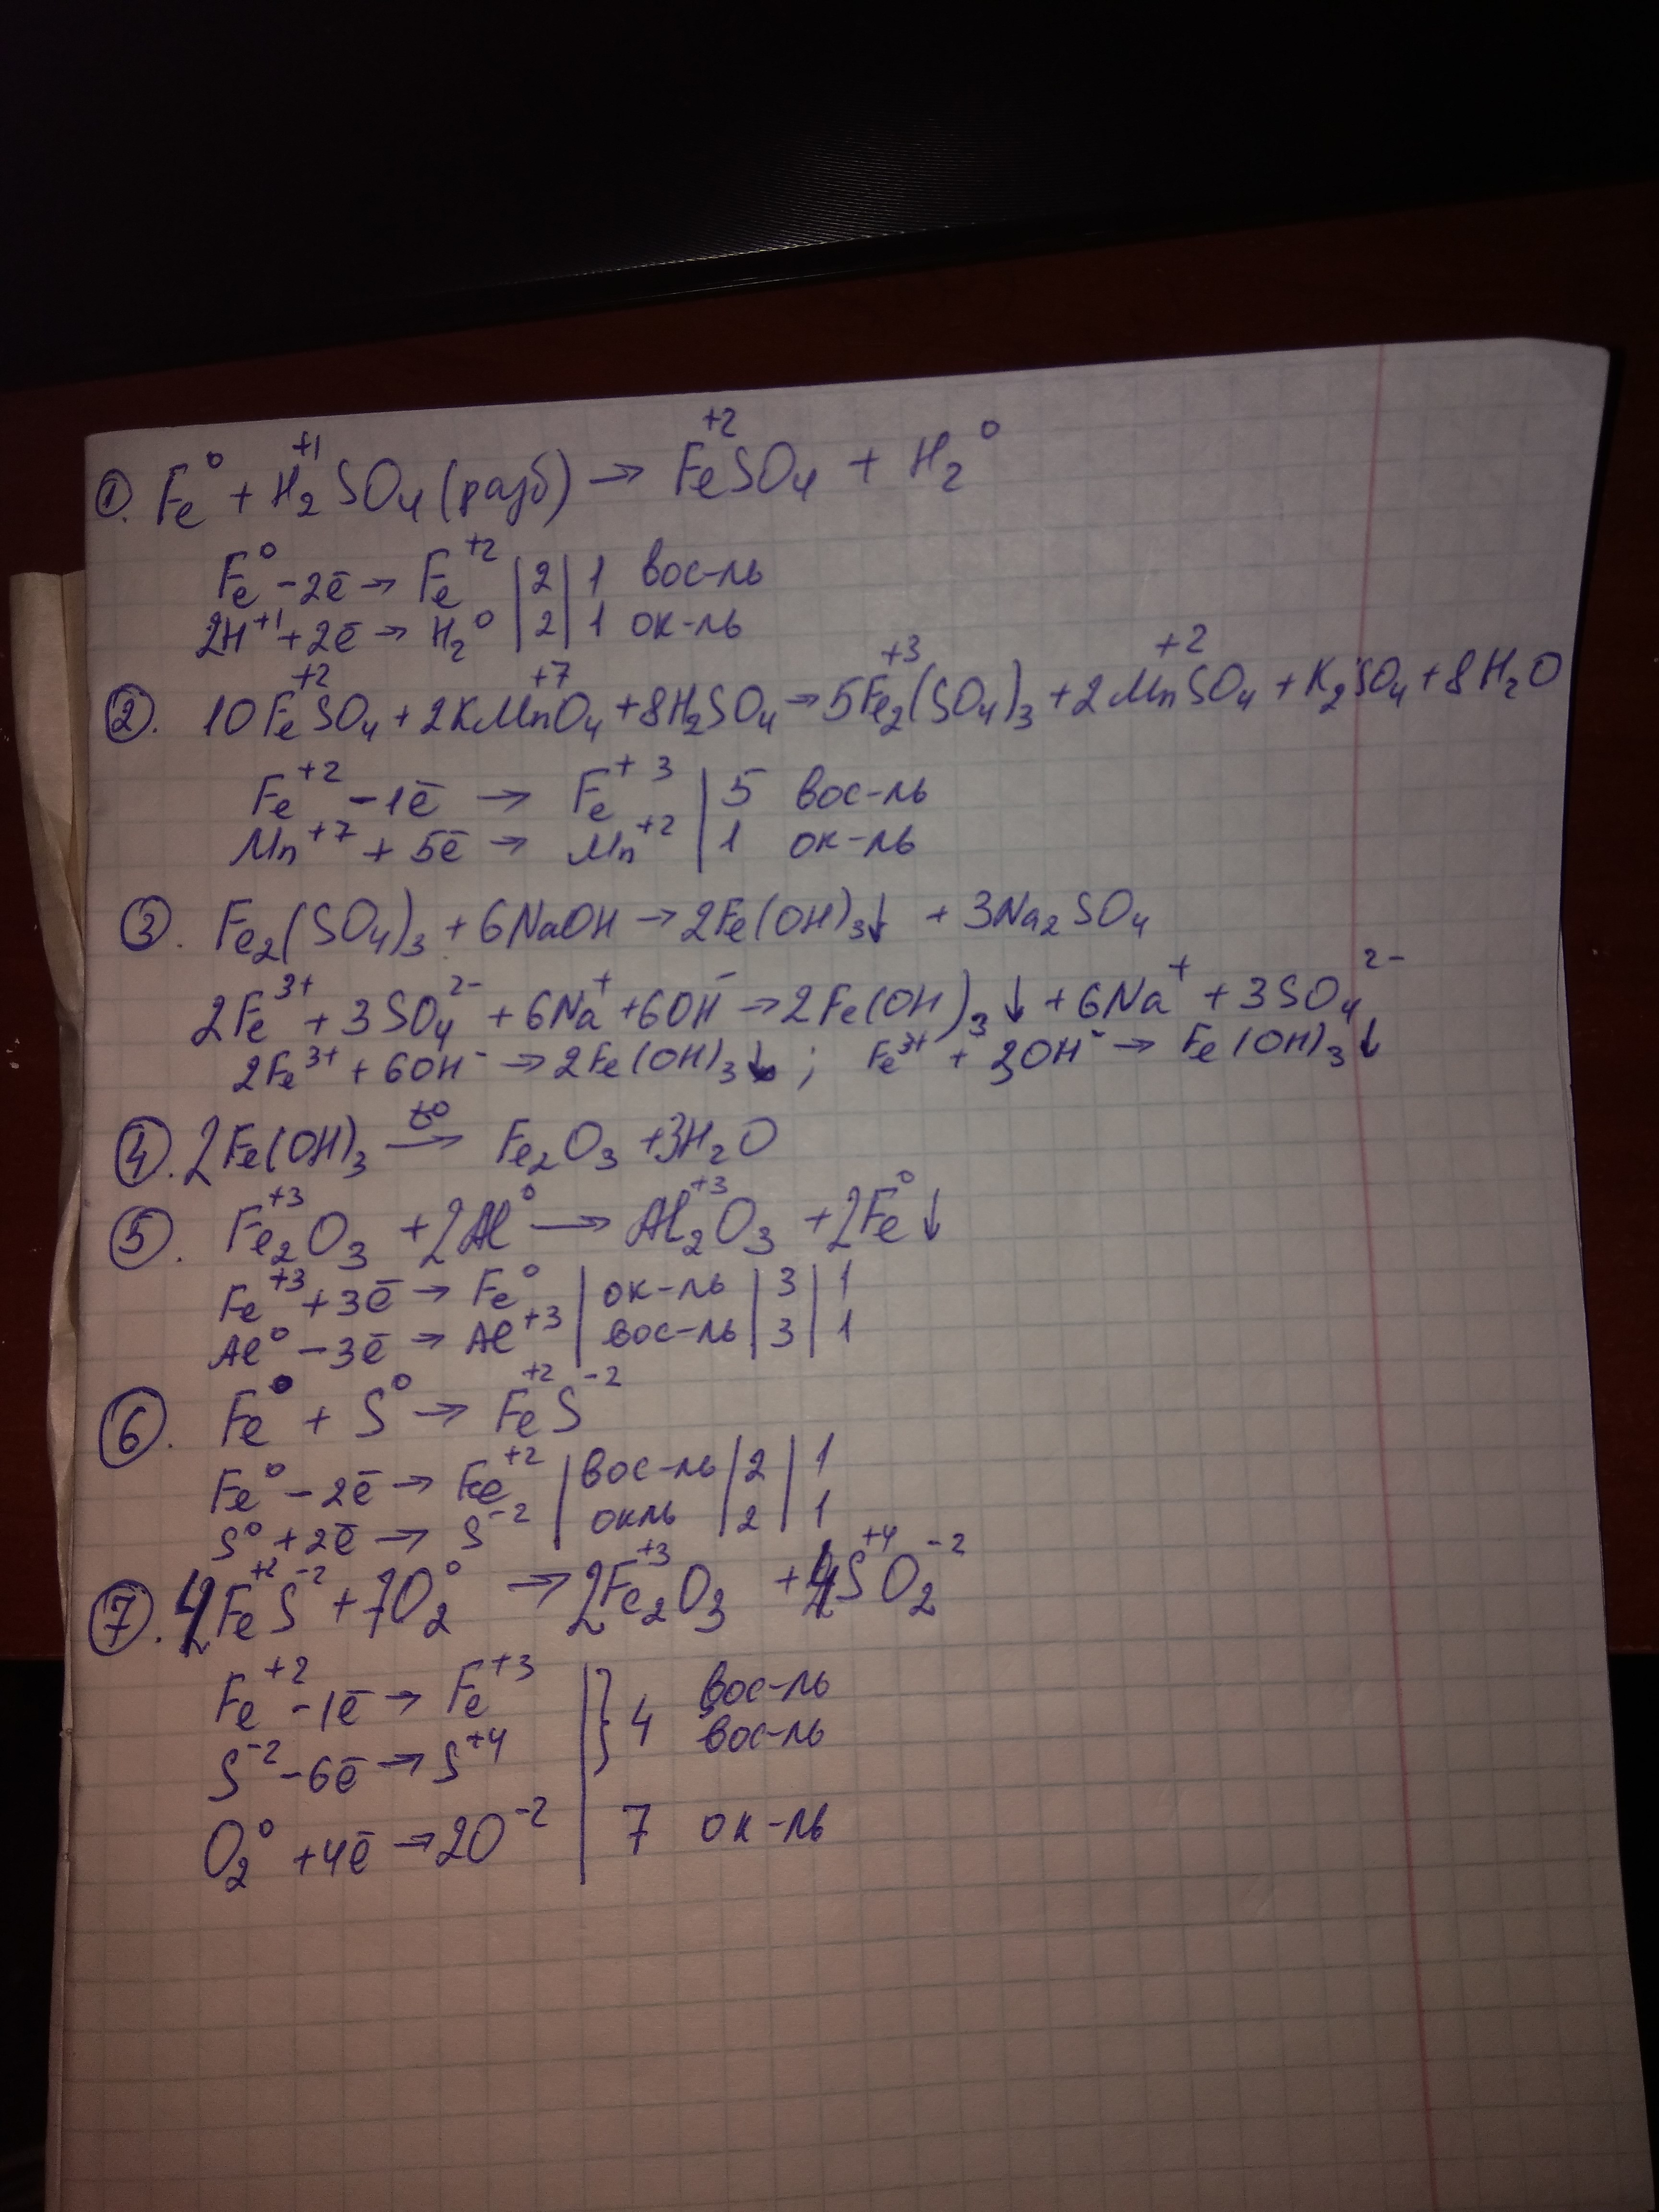 ①. Fe⁰ + H₂⁺¹SO₄ (разб) → Fe⁺²SO₄ + H₂⁰
Fe⁰ - 2ē → Fe⁺² | 2 | 1 вос-ль
2H⁺¹ + 2ē → H₂⁰ | 2 | 1 ок-ль
②. 10Fe⁺²SO₄ + 2KMn⁺⁷O₄ + 8H₂SO₄ → 5Fe₂⁺³(SO₄)₃ + 2Mn⁺²SO₄ + K₂SO₄ + 8H₂O
Fe⁺² - 1ē → Fe⁺³ | 5 вос-ль
Mn⁺⁷ + 5ē → Mn⁺² | 1 ок-ль
③. Fe₂(SO₄)₃ + 6NaOH → 2Fe(OH)₃↓ + 3Na₂SO₄
2Fe³⁺ + 3SO₄²⁻ + 6Na⁺ + 6OH⁻ → 2Fe(OH)₃↓ + 6Na⁺ + 3SO₄²⁻
2Fe³⁺ + 6OH⁻ → 2Fe(OH)₃↓ ; Fe³⁺ + 3OH⁻ → Fe(OH)₃↓
④. 2Fe(OH)₃ →(t⁰) Fe₂O₃ + 3H₂O
⑤. Fe₂⁺³O₃ + 2Al⁰ → Al₂⁺³O₃ + 2Fe⁰↓
Fe⁺³ + 3ē → Fe⁰ | ок-ль | 3 | 1
Al⁰ - 3ē → Al⁺³ | вос-ль | 3 | 1
⑥. Fe⁰ + S⁰ → Fe⁺²S⁻²
Fe⁰ - 2ē → Fe⁺² | вос-ль | 2 | 1
S⁰ + 2ē → S⁻² | окль | 2 | 1
⑦. 4Fe⁺²S⁻² + 7O₂⁰ → 2Fe₂⁺³O₃ + 4S⁺⁴O₂⁻²
Fe⁺² - 1ē → Fe⁺³ | } 4 вос-ль
S⁻² - 6ē → S⁺⁴ | вос-ль
O₂⁰ + 4ē → 2O⁻² | 7 ок-ль